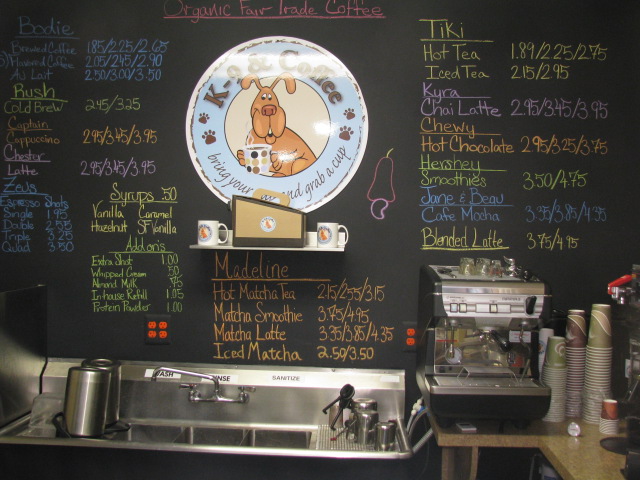 Organic Fair Trade Coffee
Bodie
Brewed Coffee 1.85/2.25/2.65
Flavored Coffee 2.05/2.45/2.90
Au Lait 2.50/3.00/3.50
Rush
Cold Brew 2.45/3.25
Captain
Cappuccino 2.95/3.45/3.95
Chester
Latte 2.95/3.45/3.95
Zeus
Espresso Shots
Single 1.95
Double 2.55
Triple 3.25
Quad 3.50
Syrups .50
Vanilla Caramel
Hazelnut SF Vanilla
Add ons
Extra Shot 1.00
Whipped Cream .50
Almond Milk .75
In-house Refill 1.05
Protein Powder 1.00
K-9 & Coffee
bring your and grab a cup
Madeline
Hot Matcha Tea 2.15/2.55/3.15
Matcha Smoothie 3.75/4.95
Matcha Latte 3.35/3.85/4.35
Iced Matcha 2.50/3.50
Tiki
Hot Tea 1.89/2.25/2.75
Iced Tea 2.15/2.95
Kyra
Chai Latte 2.95/3.45/3.95
Chewy
Hot Chocolate 2.95/3.25/3.75
Hershey
Smoothies 3.50/4.75
Jane & Beau
Cafe Mocha 3.35/3.85/4.35
Blended Latte 3.75/4.95
WASH RINSE SANITIZE